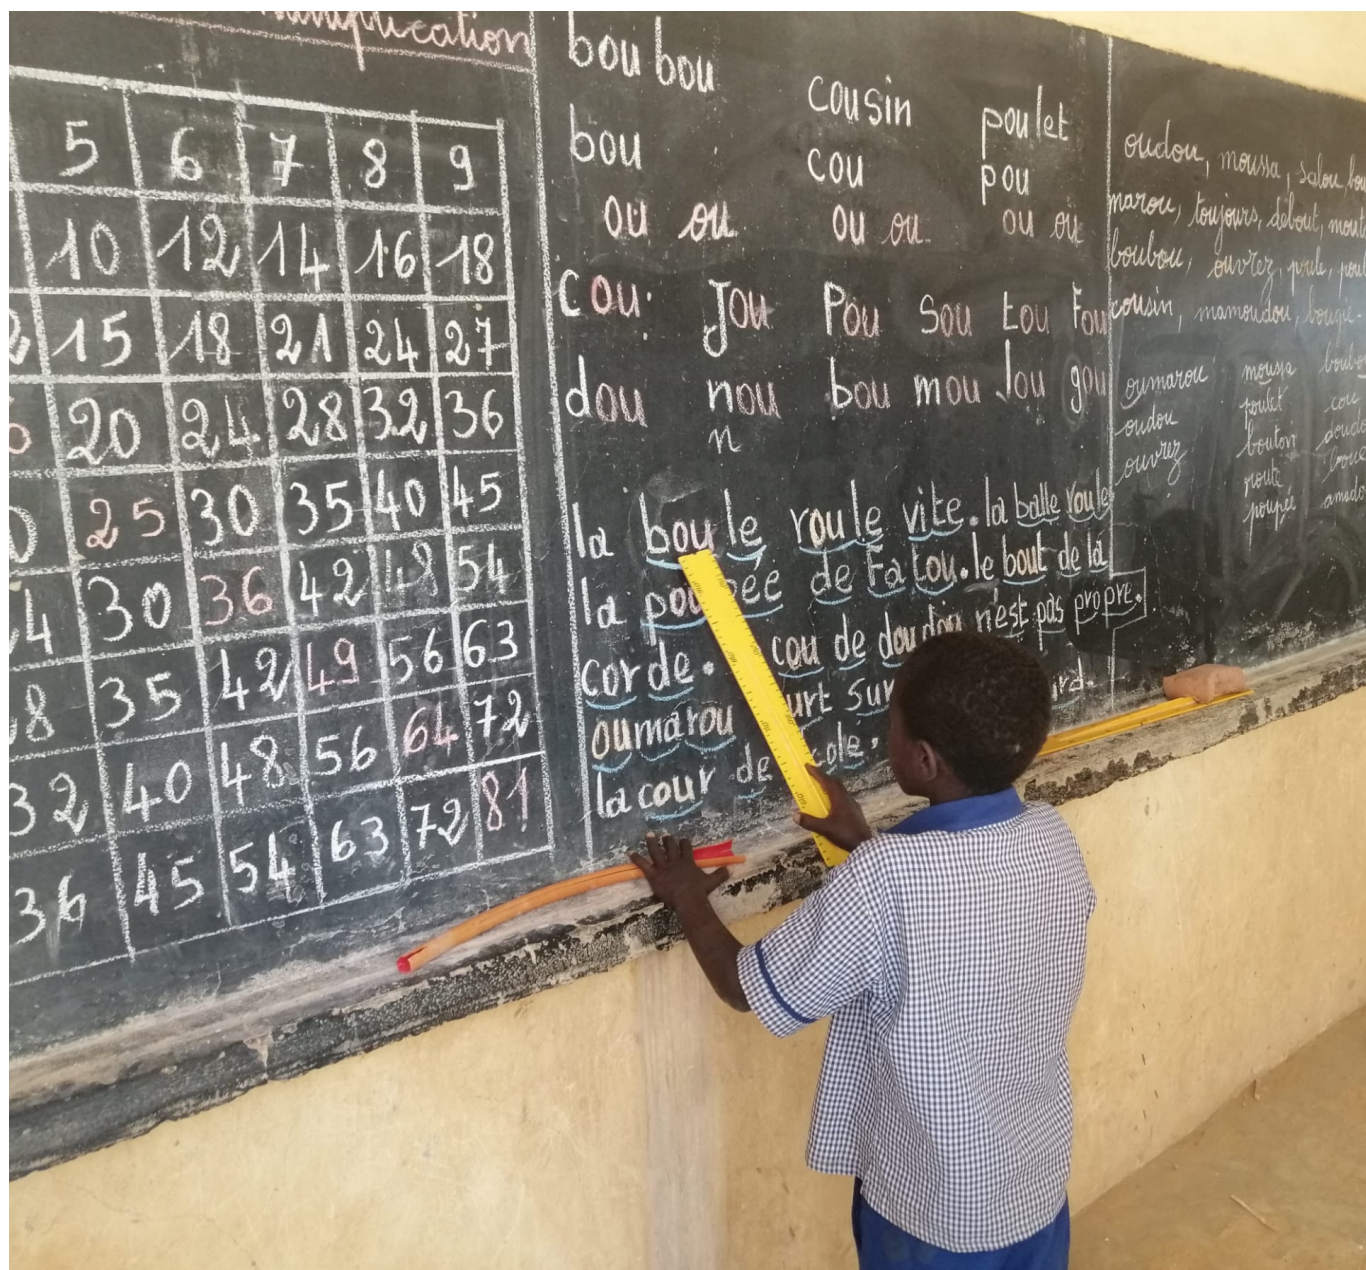 multiplication
5 6 7 8 9
10 12 14 16 18
15 18 21 24 27
20 24 28 32 36
25 30 35 40 45
30 36 42 48 54
35 42 49 56 63
32 40 48 56 64 72
36 45 54 63 72 81
boubou cousin poulet
bou cou pou
ou ou ou ou ou ou
cou jou pou sou tou fou
dou nou bou mou lou gou
n
la boule roule vite. la balle roule
la poupée de Fatou. le bout de la
corde. cou de doudou n'est pas propre.
oumarou sur
la cour de
oudou, moussa, salou
marou, toujours, debout
boubou, ouvrez, poule
cousin, mamoudou, bougie
oumarou moussa boubou
oudou poulet cou
ouvrez bouton
route
poupée